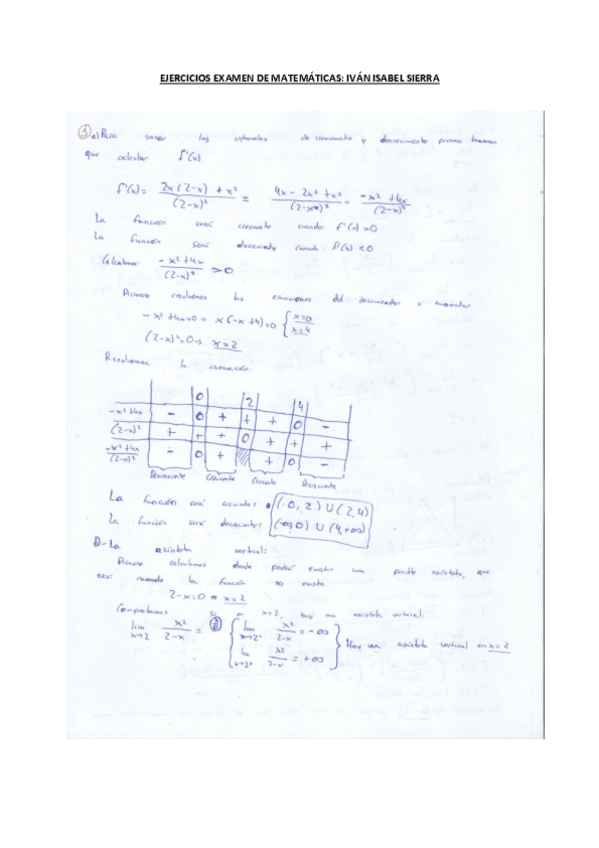 EJERCICIOS EXAMEN DE MATEMÁTICAS: IVÁN ISABEL SIERRA
① a) Para sacar los intervalos de crecimiento y decrecimiento primero tenemos
que calcular f'(x)
f'(x) = 2x(2-x) + x² / (2-x)² = 4x - 2x² + x² / (2-x)² = -x² + 4x / (2-x)²
La función será creciente cuando f'(x) > 0
La función será decreciente cuando: f'(x) < 0
Calculamos -x² + 4x / (2-x)² > 0
Primero resolvemos las ecuaciones del denominador y numerador
-x² + 4x = 0 ⇒ x(-x + 4) = 0 { x=0 x=4
(2-x)² = 0 ⇒ x = 2
Resolvemos la inecuación:
0 2 4
-x² + 4x - 0 + + + 0 -
(2-x)² + + + 0 + + +
-x² + 4x / (2-x)² - 0 + + 0 -
Decreciente Creciente Creciente Decreciente
La función será creciente: (0, 2) U (2, 4)
La función será decreciente: (-∞, 0) U (4, +∞)
asíntota vertical:
Primero calculamos donde podrá existir una posible asíntota, que
será cuando la función no exista.
2-x=0 ⇒ x=2
Comprobamos si en x=2, hay una asíntota vertical.
lim x→2 x² / 2-x = { lim x→2⁺ x² / 2-x = -∞
lim x→2⁻ x² / 2-x = +∞ } Hay una asíntota vertical en x=2